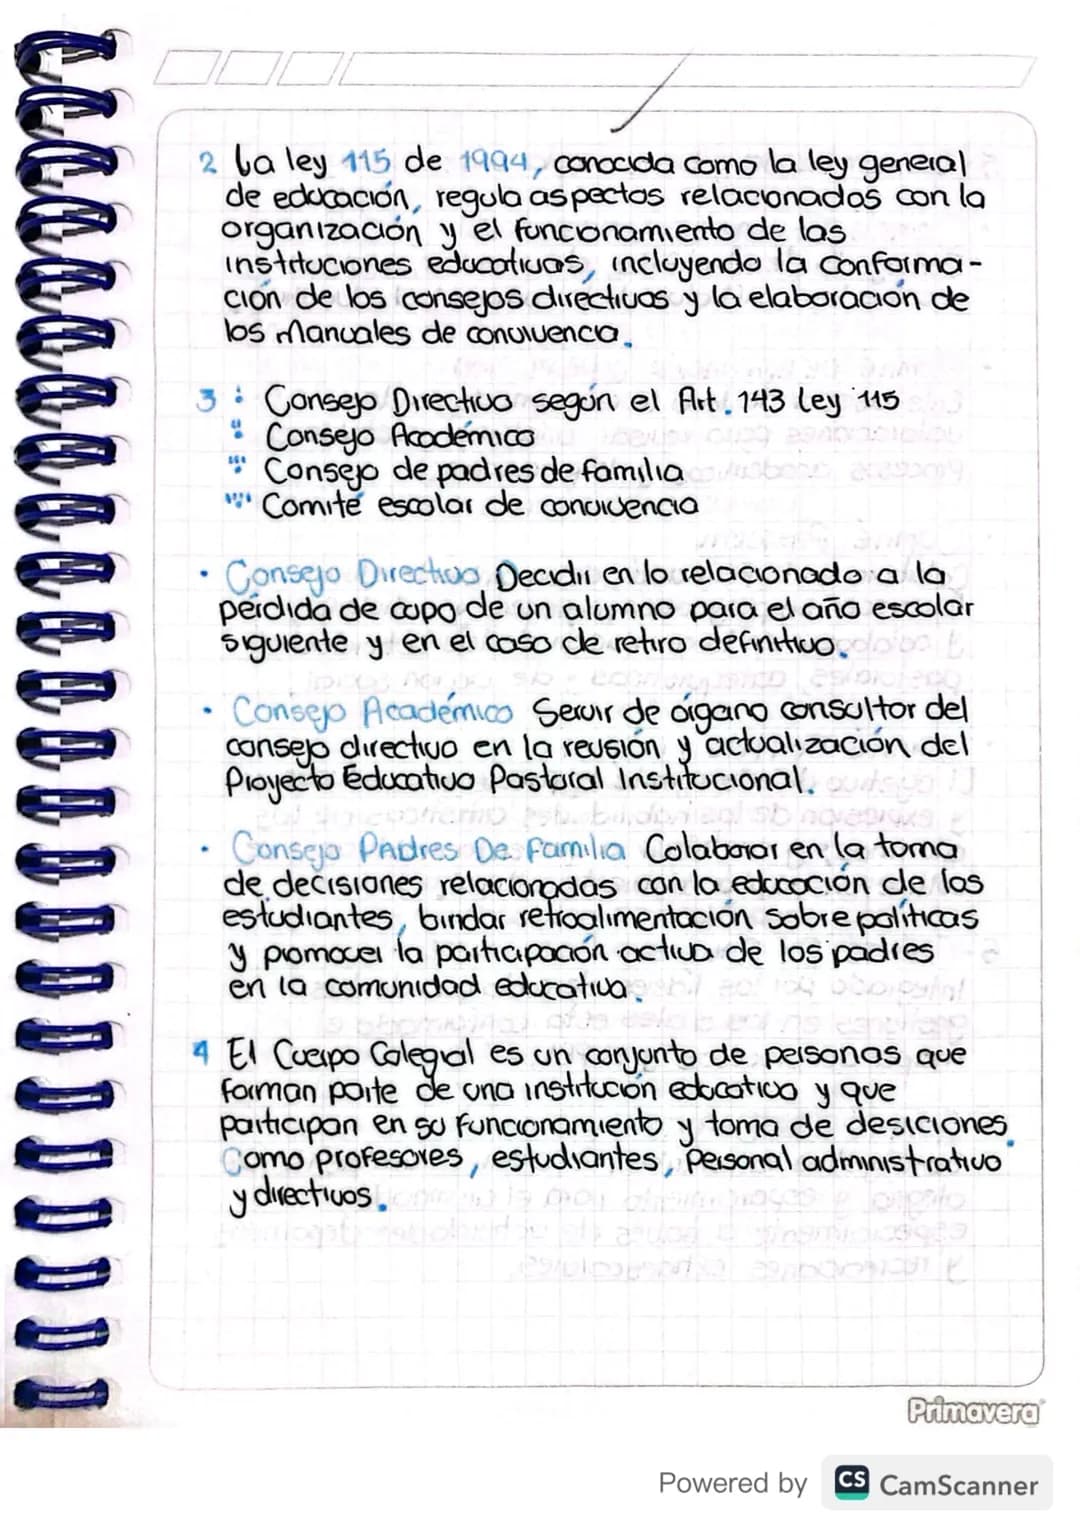 2 La ley 115 de 1994, conocida como la ley general
de educación, regula aspectos relacionados con la
organización y el funcionamiento de las
instituciones educativas, incluyendo la conforma-
ción de los consejos directivos y la elaboración de
los Manuales de convivencia.
3 : Consejo Directivo según el Art. 143 ley 115
Consejo Académico
Consejo de padres de familia
Comité escolar de convivencia
• Consejo Directivo Decidir en lo relacionado a la
pérdida de cupo de un alumno para el año escolar
siguiente y en el caso de retiro definitivo.
• Consejo Académico Servir de órgano consultor del
consejo directivo en la revisión y actualización del
Proyecto Educativo Pastoral Institucional.
• Consejo Padres De Familia Colaborar en la toma
de decisiones relacionadas con la educación de los
estudiantes, brindar retroalimentación sobre políticas
y promover la participación activa de los padres
en la comunidad educativa.
4 El Cuerpo Colegial es un conjunto de personas que
forman parte de una institución educativa y que
participan en su funcionamiento y toma de desiciones
Como profesores, estudiantes, Personal administrativo
y directivos.
Primavera
Powered by CS CamScanner